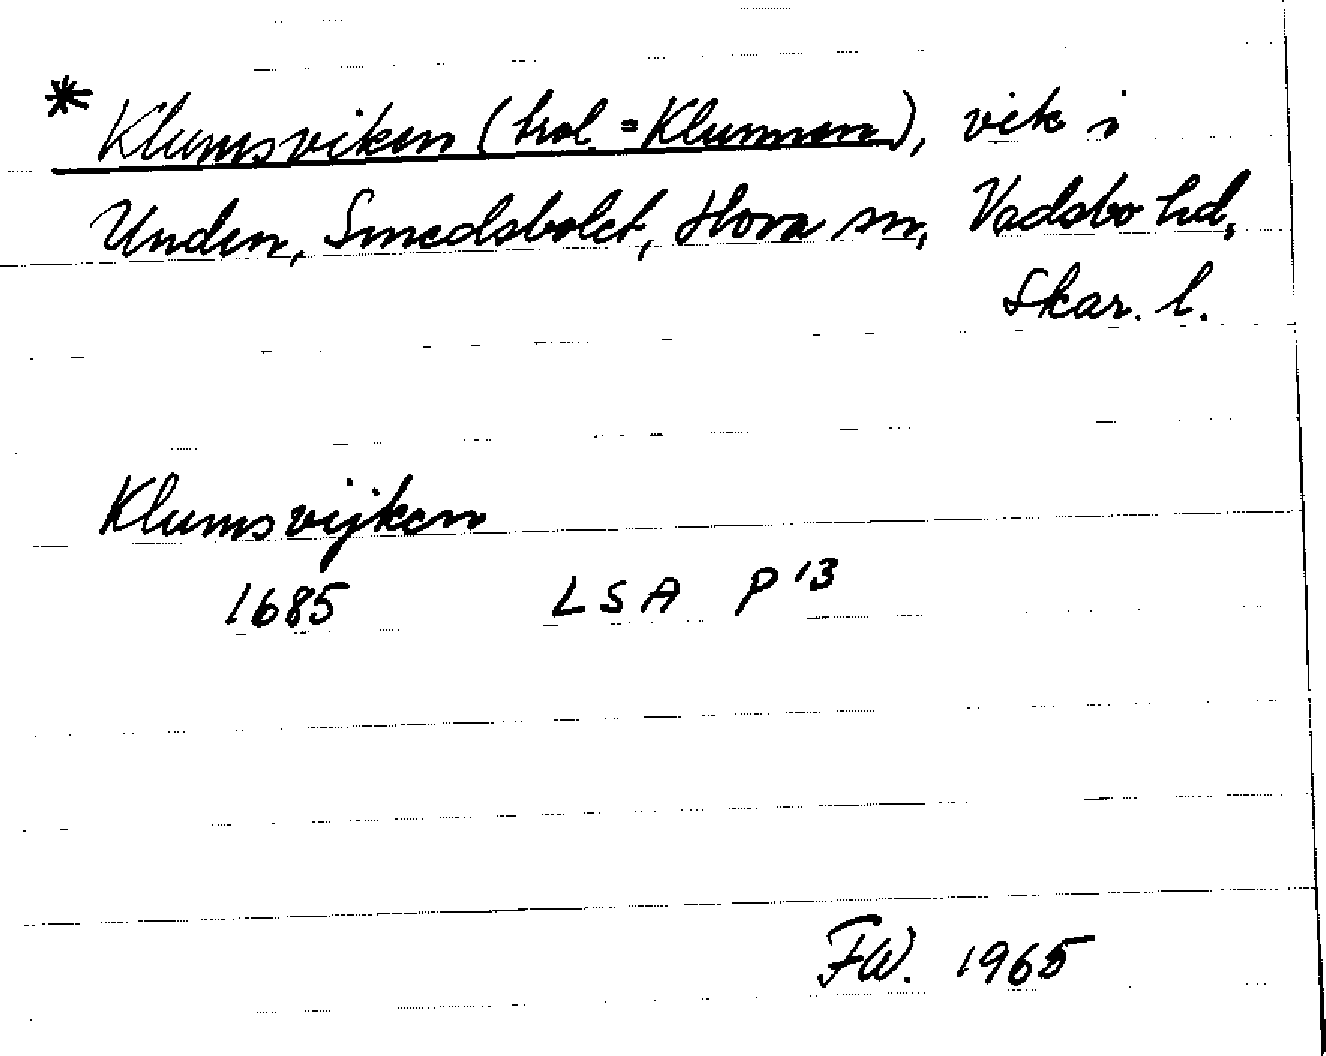 * Klumsviken (trol. = Klummen), vik i
Unden, Smedsbolet, Hova sn, Vadsbo hd,
Skar. l.
Klumsvijken
1685 LSA P 13
FW. 1965